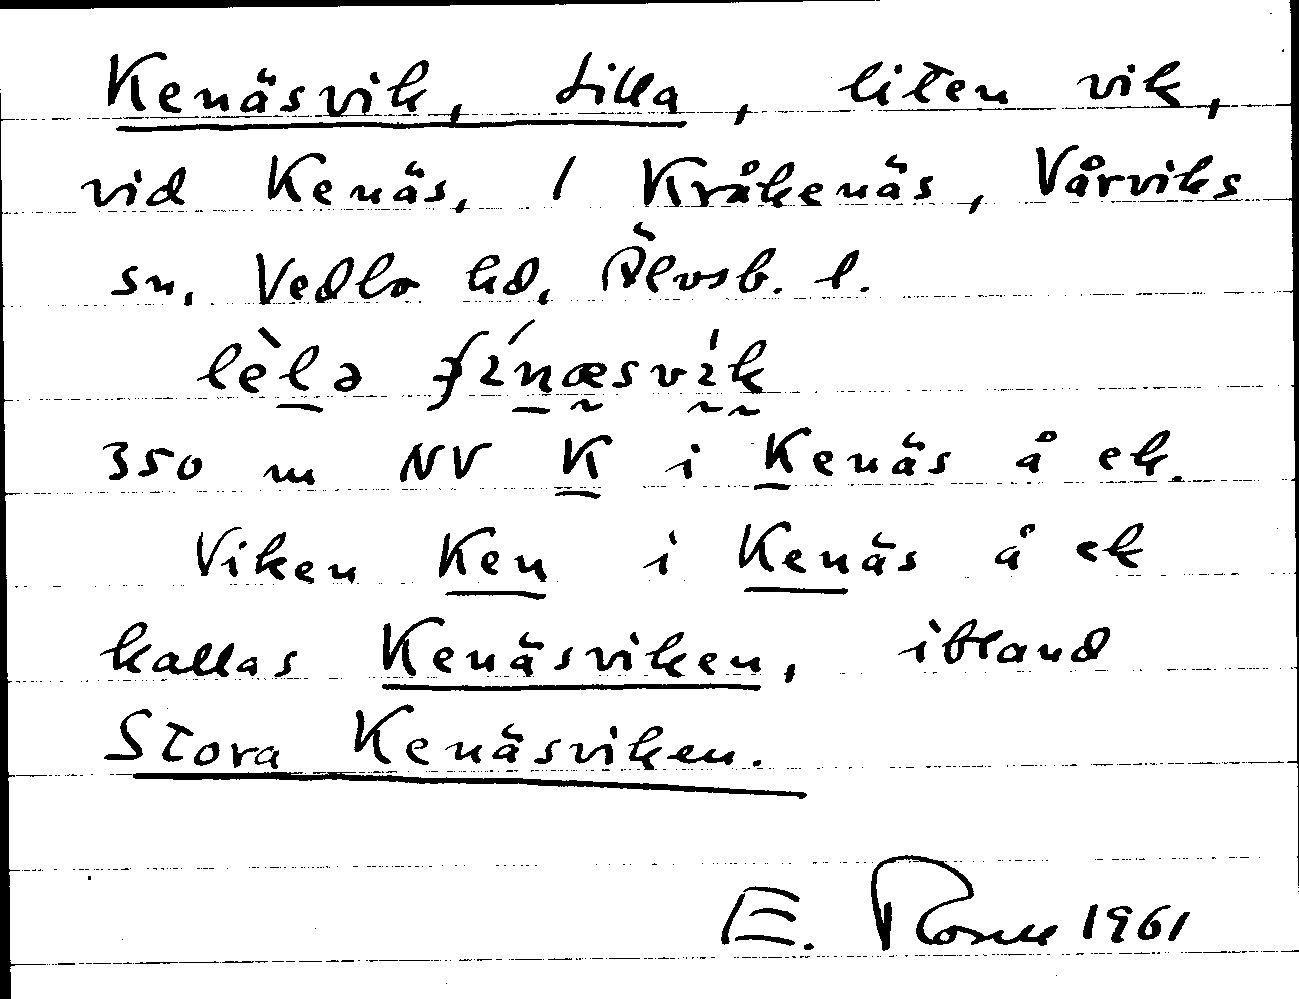 Kenäsvik, Lilla, liten vik,
vid Kenäs, 1 Kråkenäs, Vårviks
sn, Vedbo hd, Älvsb. l.
350 m NV K i Kenäs å ek.
Viken Ken i Kenäs å ek
kallas Kenäsviken, ibland
Stora Kenäsviken.
E. 1961